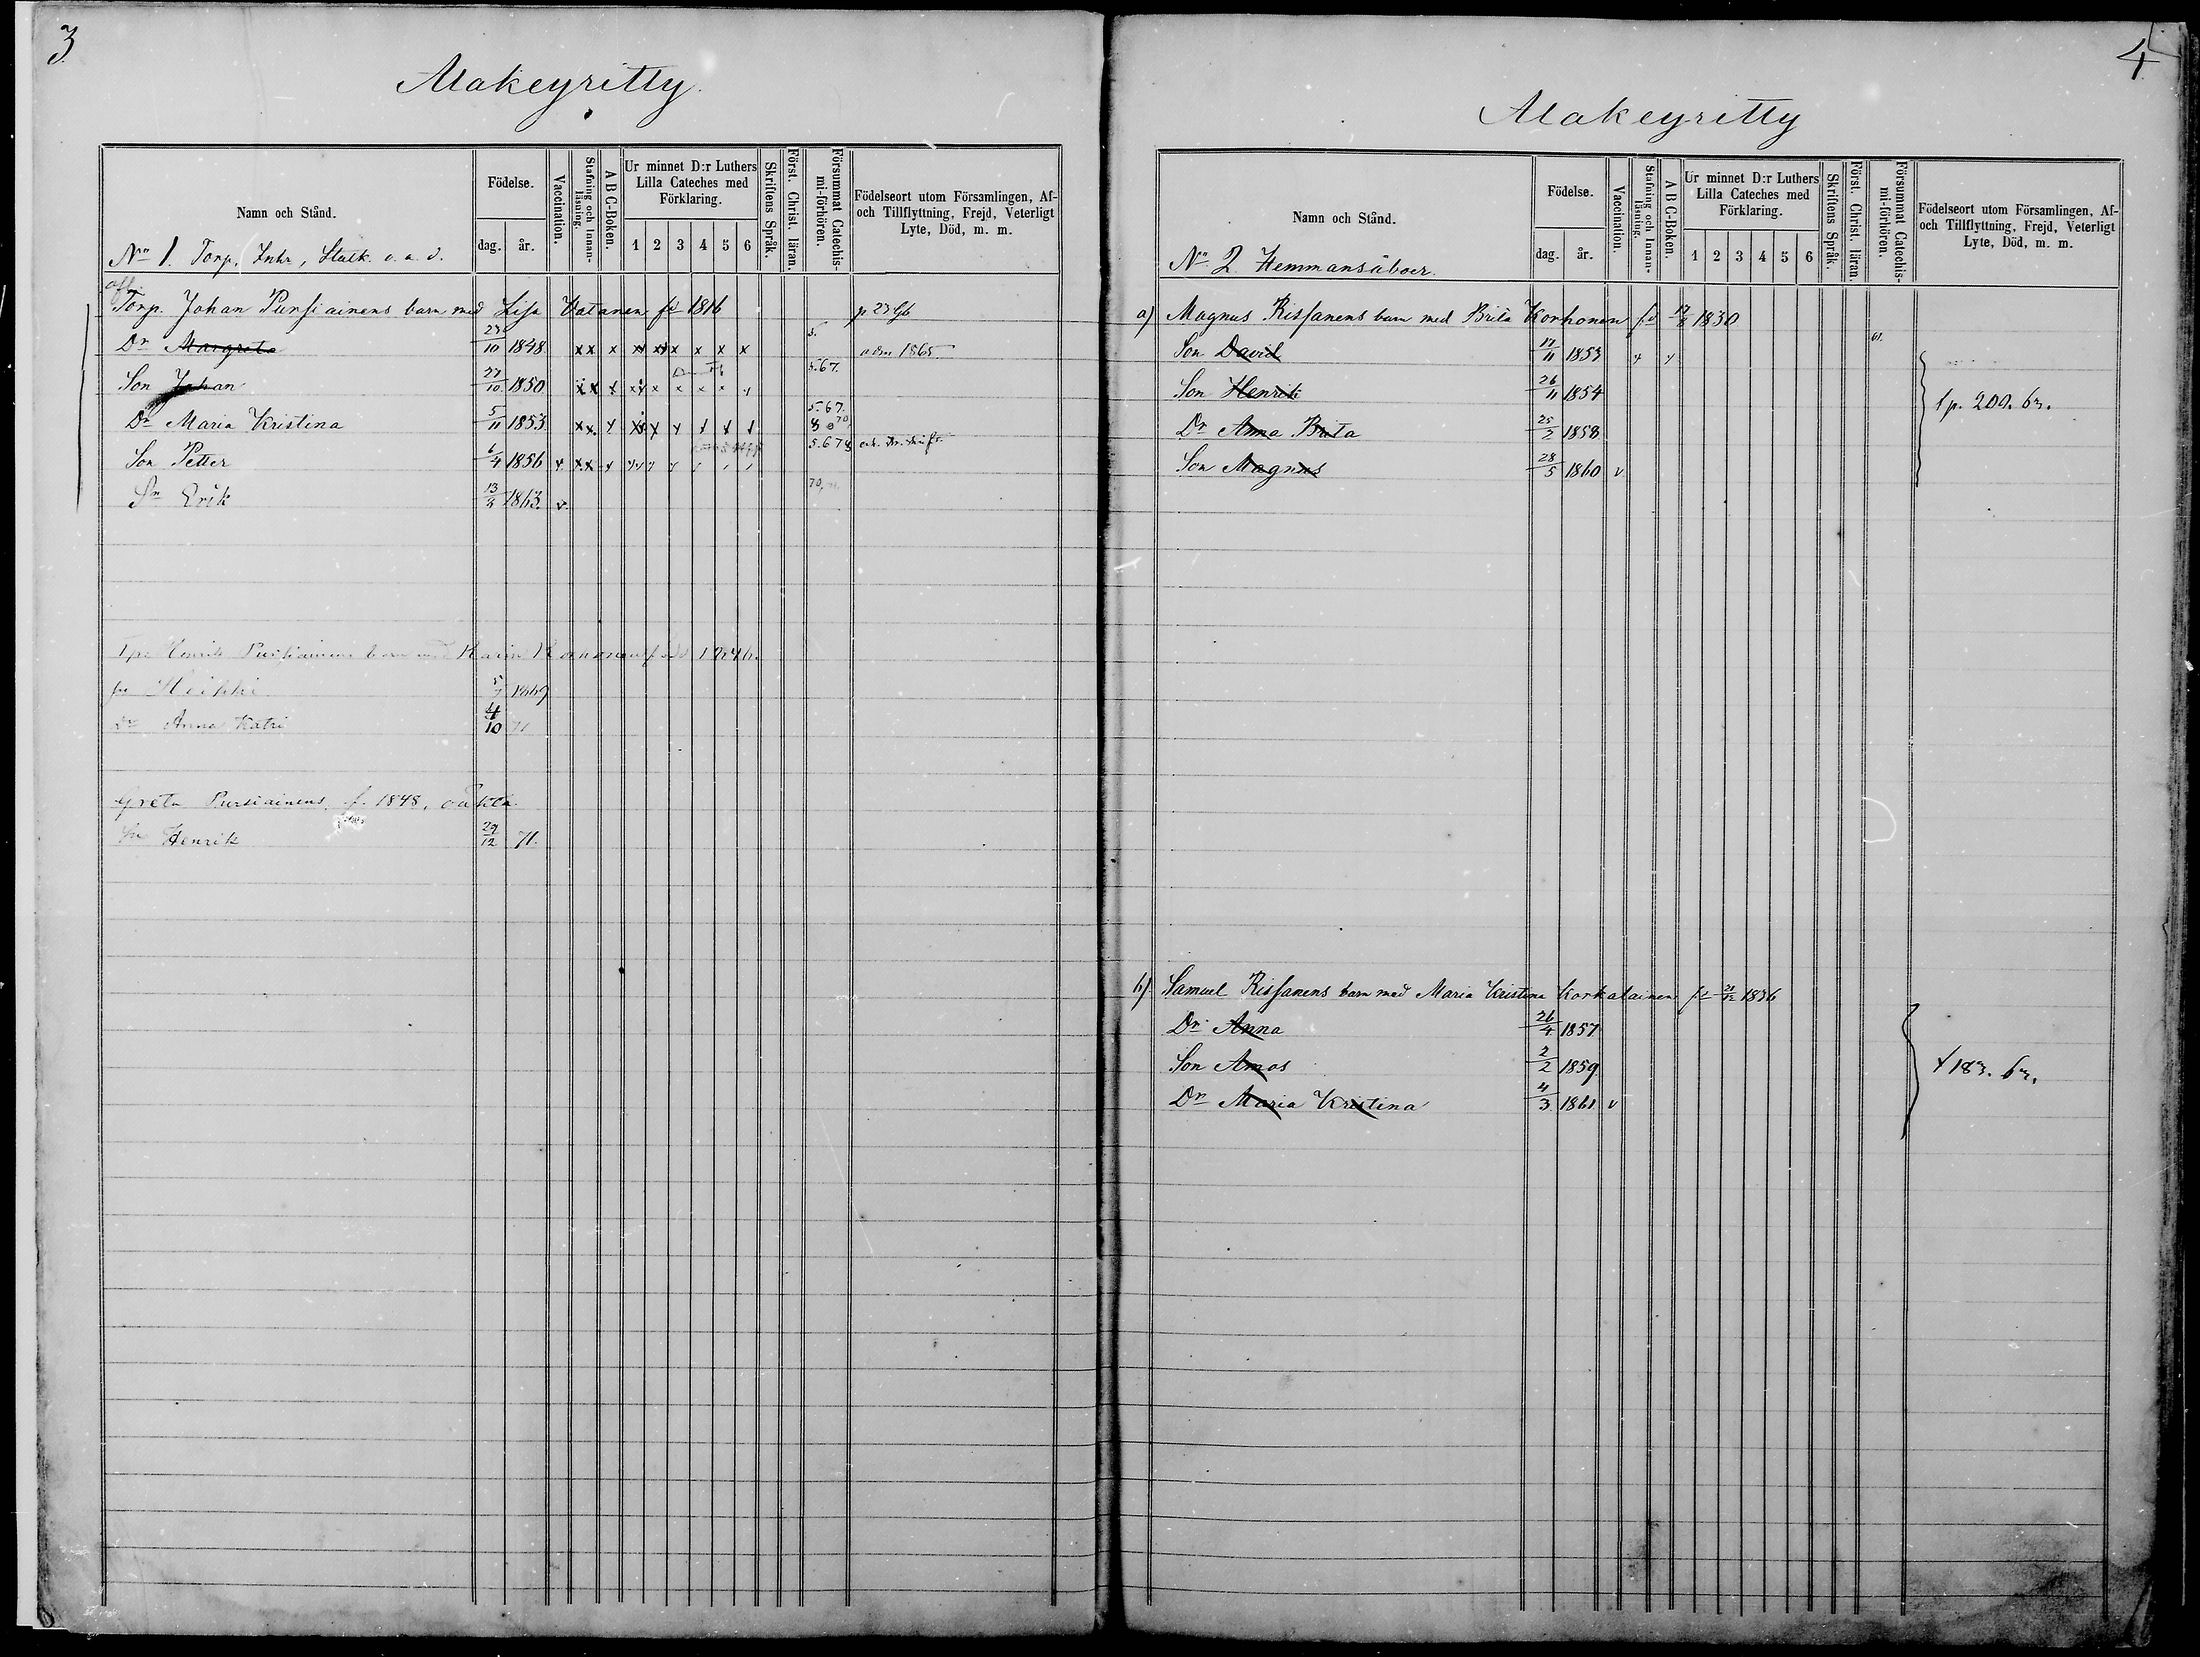 3
Alakeyritty.
Namn och Stånd.
Födelse.
dag.
år.
Vaccination.
Stafning och Innan-läsning.
A B C-Boken.
Ur minnet D:r Luthers Lilla Cateches med Förklaring.
1 2 3 4 5 6
Skriftens Språk.
Först. Christ. läran.
Försummat Catechis-mi-förhören.
Födelseort utom Församlingen, Af- och Tillflyttning, Frejd, Veterligt Lyte, Död, m. m.
No 1. Torp. Inhr, Statk. o. a. d.
Torp. Johan Pursiainens barn med Lisa Vatanen fd 1816 p 23
Dr Margreta 23/10 1848 x x x x x x x x x x 5. adm 1865
Son Johan 27/10 1850 x x x x x x x x x x 5.67.
Dr Maria Kristina 5/11 1853 5.67. 8 70
Son Petter 6/4 1856 5.678
Sn Erik 13/2 1863 v 70
Henrik Pursiainens barn med Karin 1846
sn Heikki 5/7 1869
Dr Anna Katri 4/10 71
Greta Pursiainens, f. 1848, oäkta
Sn Henrik 29/12 71.
4
Alakeyritty
Namn och Stånd.
Födelse.
dag.
år.
Vaccination.
Stafning och Innan-läsning.
A B C-Boken.
Ur minnet D:r Luthers Lilla Cateches med Förklaring.
1 2 3 4 5 6
Skriftens Språk.
Först. Christ. läran.
Försummat Catechis-mi-förhören.
Födelseort utom Församlingen, Af- och Tillflyttning, Frejd, Veterligt Lyte, Död, m. m.
No 2. Hemmansåboer.
a) Magnus Rissanens barn med Brita Korhonen fd 17/8 1830
Son David 17/11 1853 61.
Son Henrik 26/11 1854
Dr Anna Brita 25/2 1858
Son Magnus 28/5 1860 v
b) Samuel Rissanens barn med Maria Kristina Korkalainen fd 21/12 1836
Dr Anna 26/4 1857
Son Amos 2/2 1859
Dr Maria Kristina 4/3 1861 v